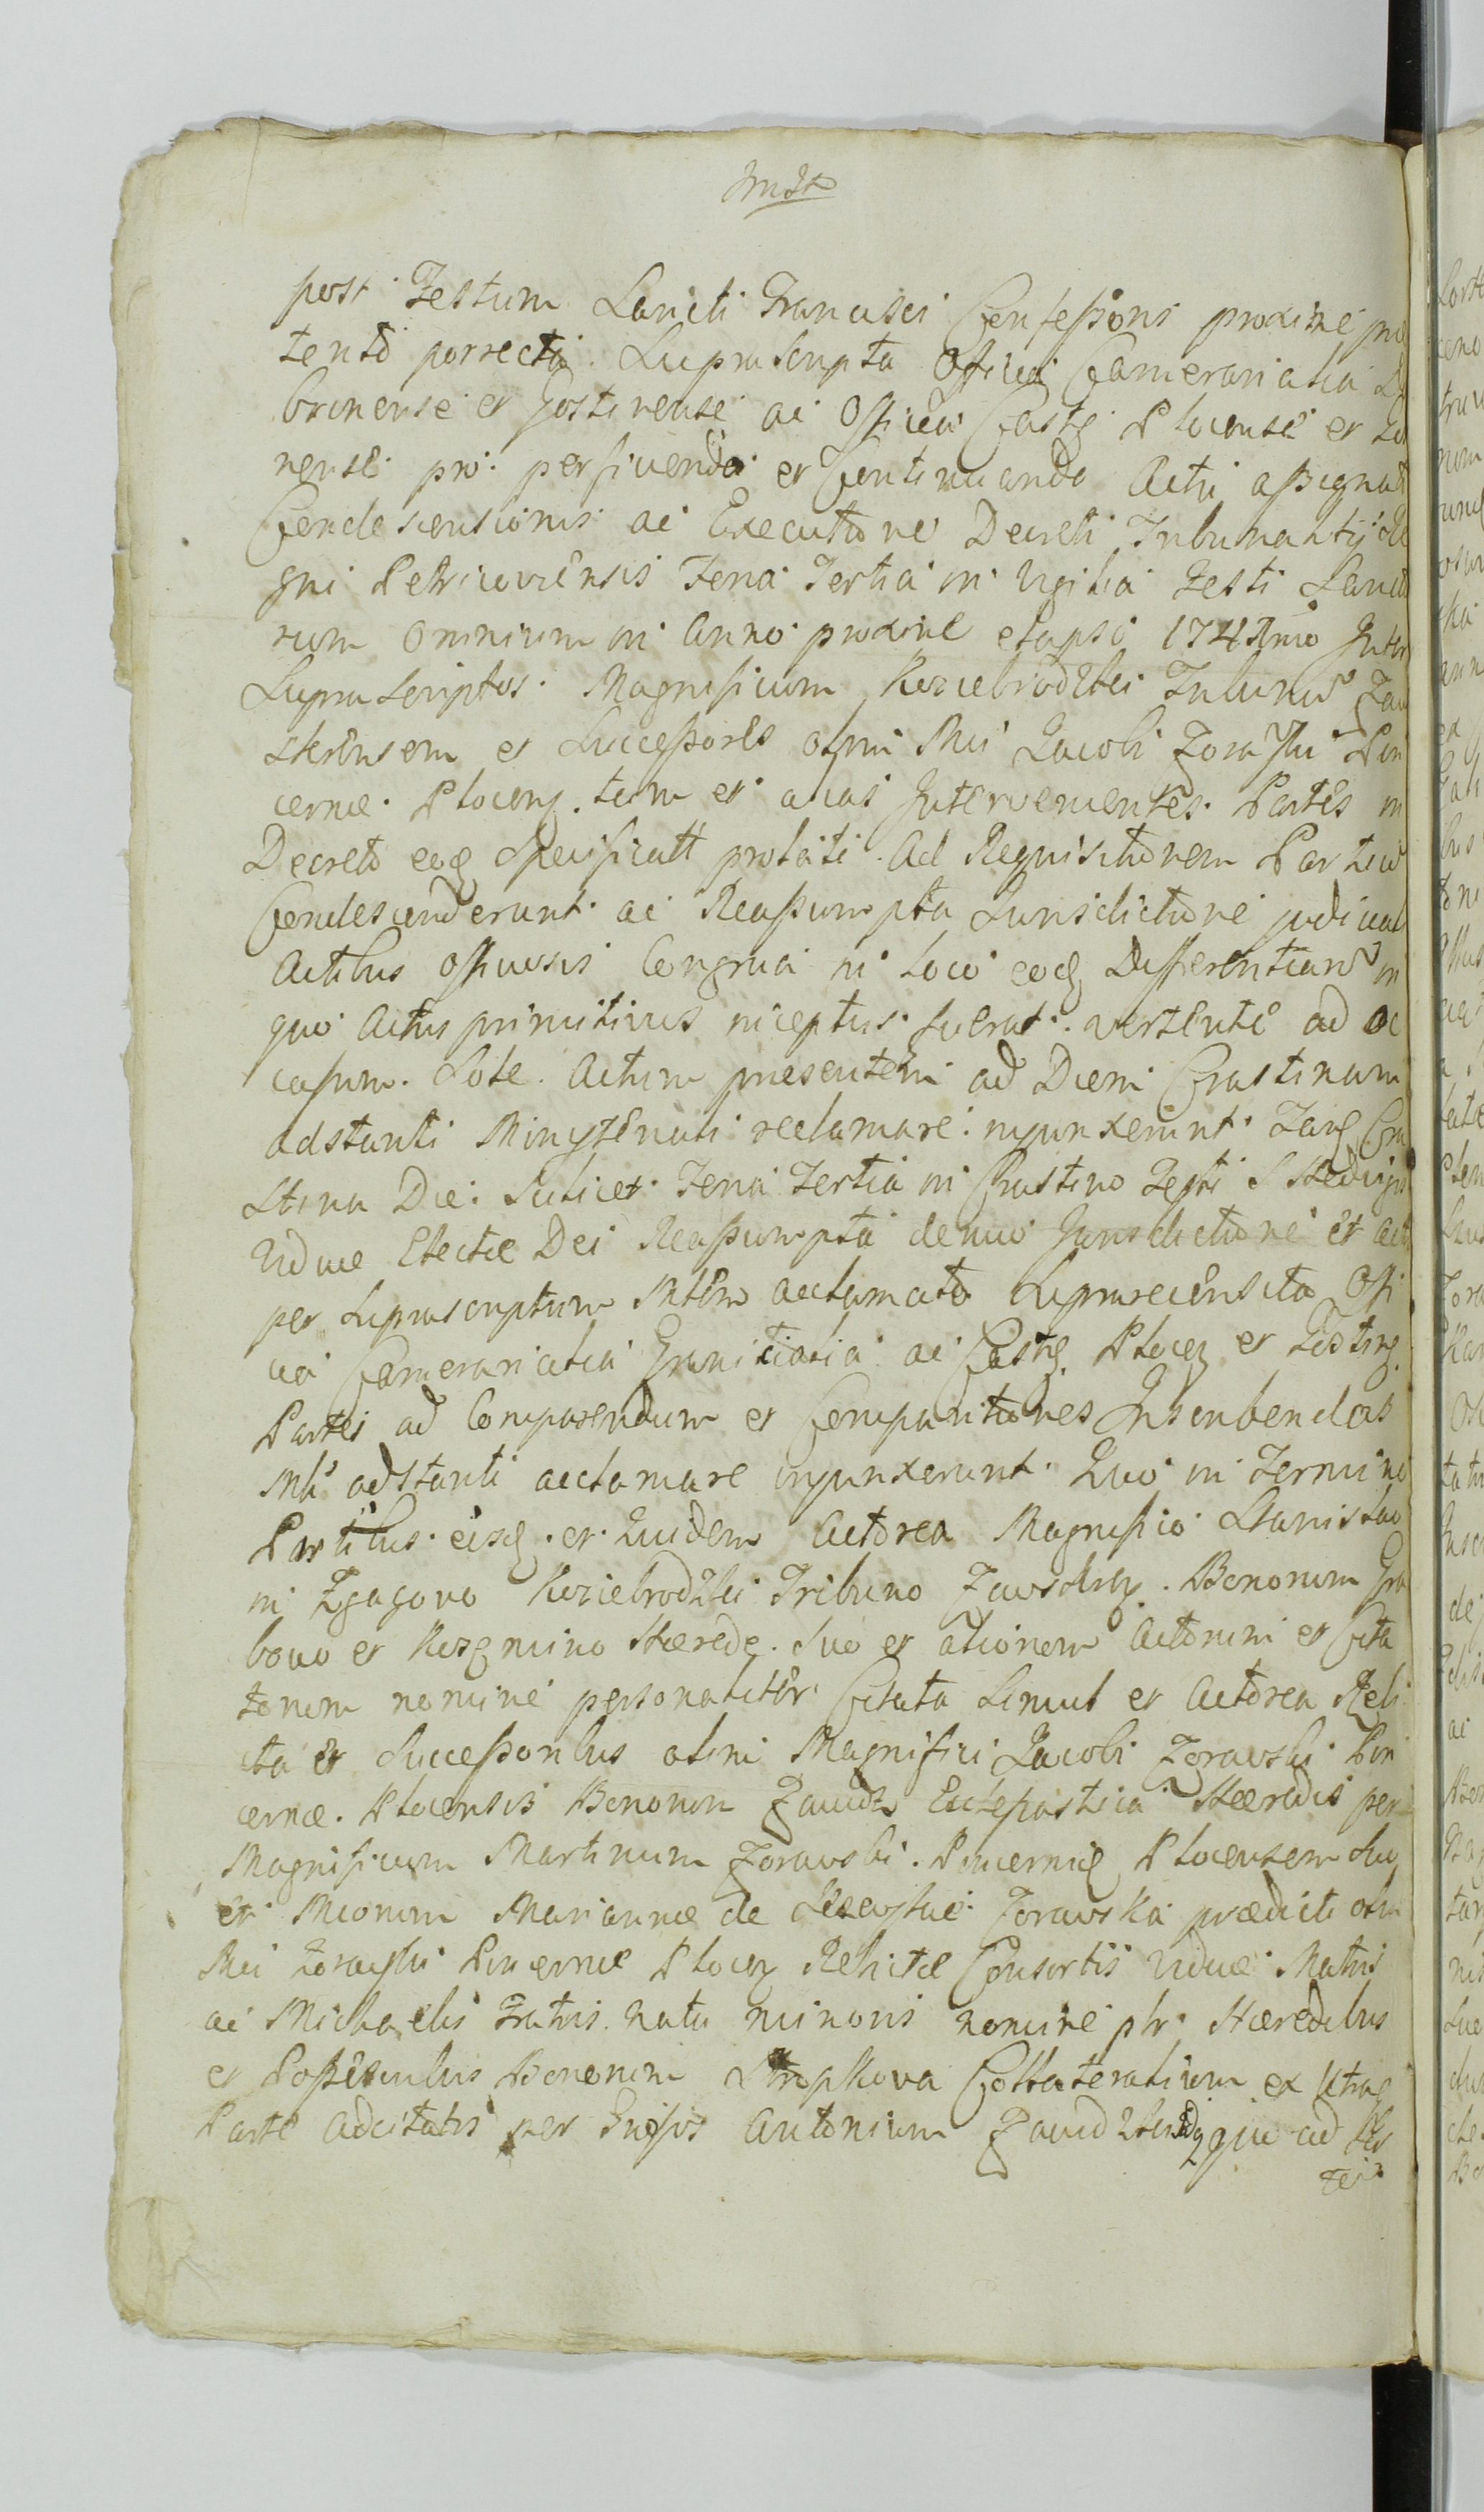 post Festum Sancti Francisci Confessoris proxime præ
tento porrecta. Suprascripta Officia Camerariatia
brinense et Gostinense ac Officia Castr Plocense et Go
nense pro perficiendo et Continuando Actu assignat
Condescensionis ac Executione Decreti Tribunalitij Re
gni Petricoviensis Feria Tertia in Vigilia Festi Sancto
rum Omnium in Anno proxime elapso Inter
Suprascriptos Magnificum Koziebrodzki Tribunū Zaw
skrensem et Successores olim Mci Jacobi Zorawski Pin
cernæ Plocen. tum et alias Intervenientes Partes in
Decreto eoq Specificatt prolati. Ad Requisitionem Partiū
Condescenderunt ac Reassumpta Jurisdictione judicial
Actibus Officiosis Congrua in Loco eoq Differentiarū in
quo Actus primitivus inceptus fuerat. vertente ad oc
casum Sole. Actum præsentem ad Diem Crastinam
adstanti Ministeriali reclamare injunxerunt. Crա
stina Die Scilicet Feria Tertia in Crastino Festi S Hedvigis
Viduæ Electæ Dei Reassumpta denuo Jurisdictione et Actu
per Suprascriptum Mlem acclamato Suprarecensita Offi
cia Camerariatia Granitialia ac Castr. Plocen et Gostin.
Partes ad Comparendum et Comparitiones Inscribendas
Mli adstanti acclamare injunxerunt. Quo in Termino
Partibus eisq. et Quidem Actorea Magnifico Stanislao
in Zgagowo Koziebrodzki Tribuno Zawskrz. Bonorum Gra
bowo et Hærede. Suo et aliorum Actorum et Cita
torum nomine personaliter Citata Simul et Actorea Reli
cta et Successoribus olim Magnifici Jacobi Zorawski Pin
cernæ. Plocensis Bonorum Zawidz Hæredis per
Magnificum Martinum Zorawski. Pincernid Plocensem Suo
et Mcorum Mariannæ de Zorawska prædicti olim
Mci Zorawski Pincernæ Plocen Relictæ Consortis Viduæ Matris
ac Michaelis Fratris natu minoris nomine ptr. Hæredibus
et Possessoribus Bonorum Collateralium ex Utraq
Parte Adcitatis per Antonium qui ad